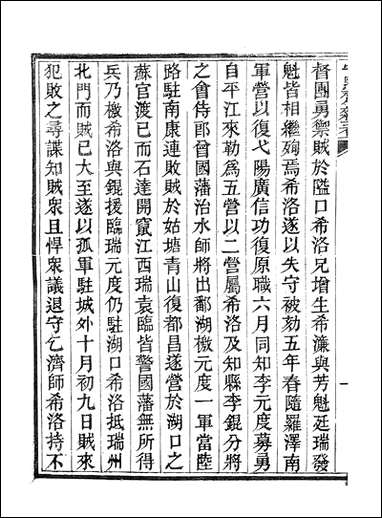 督團勇禦賊於隘口希洛兄增生希濂與芳魁廷瑞發
魁皆相繼殉焉希洛遂以失守被劾五年春隨羅澤南
軍營以復弋陽廣信功復原職六月同知李元度募勇
自平江來勒為五營以二營屬希洛及知縣李錕分將
之會侍郎曾國藩治水師將出鄱湖檄元度一軍當陸
路駐南康連敗賊於姑塘青山復都昌遂營於湖口之
蘇官渡已而石達開竄江西瑞袁臨皆警國藩無所得
兵乃檄希洛與錕援臨瑞元度仍駐湖口希洛抵瑞州
北門而賊已大至遂以孤軍駐城外十月初九日賊來
犯敗之尋諜知賊衆且悍衆議退守乞濟師希洛持不